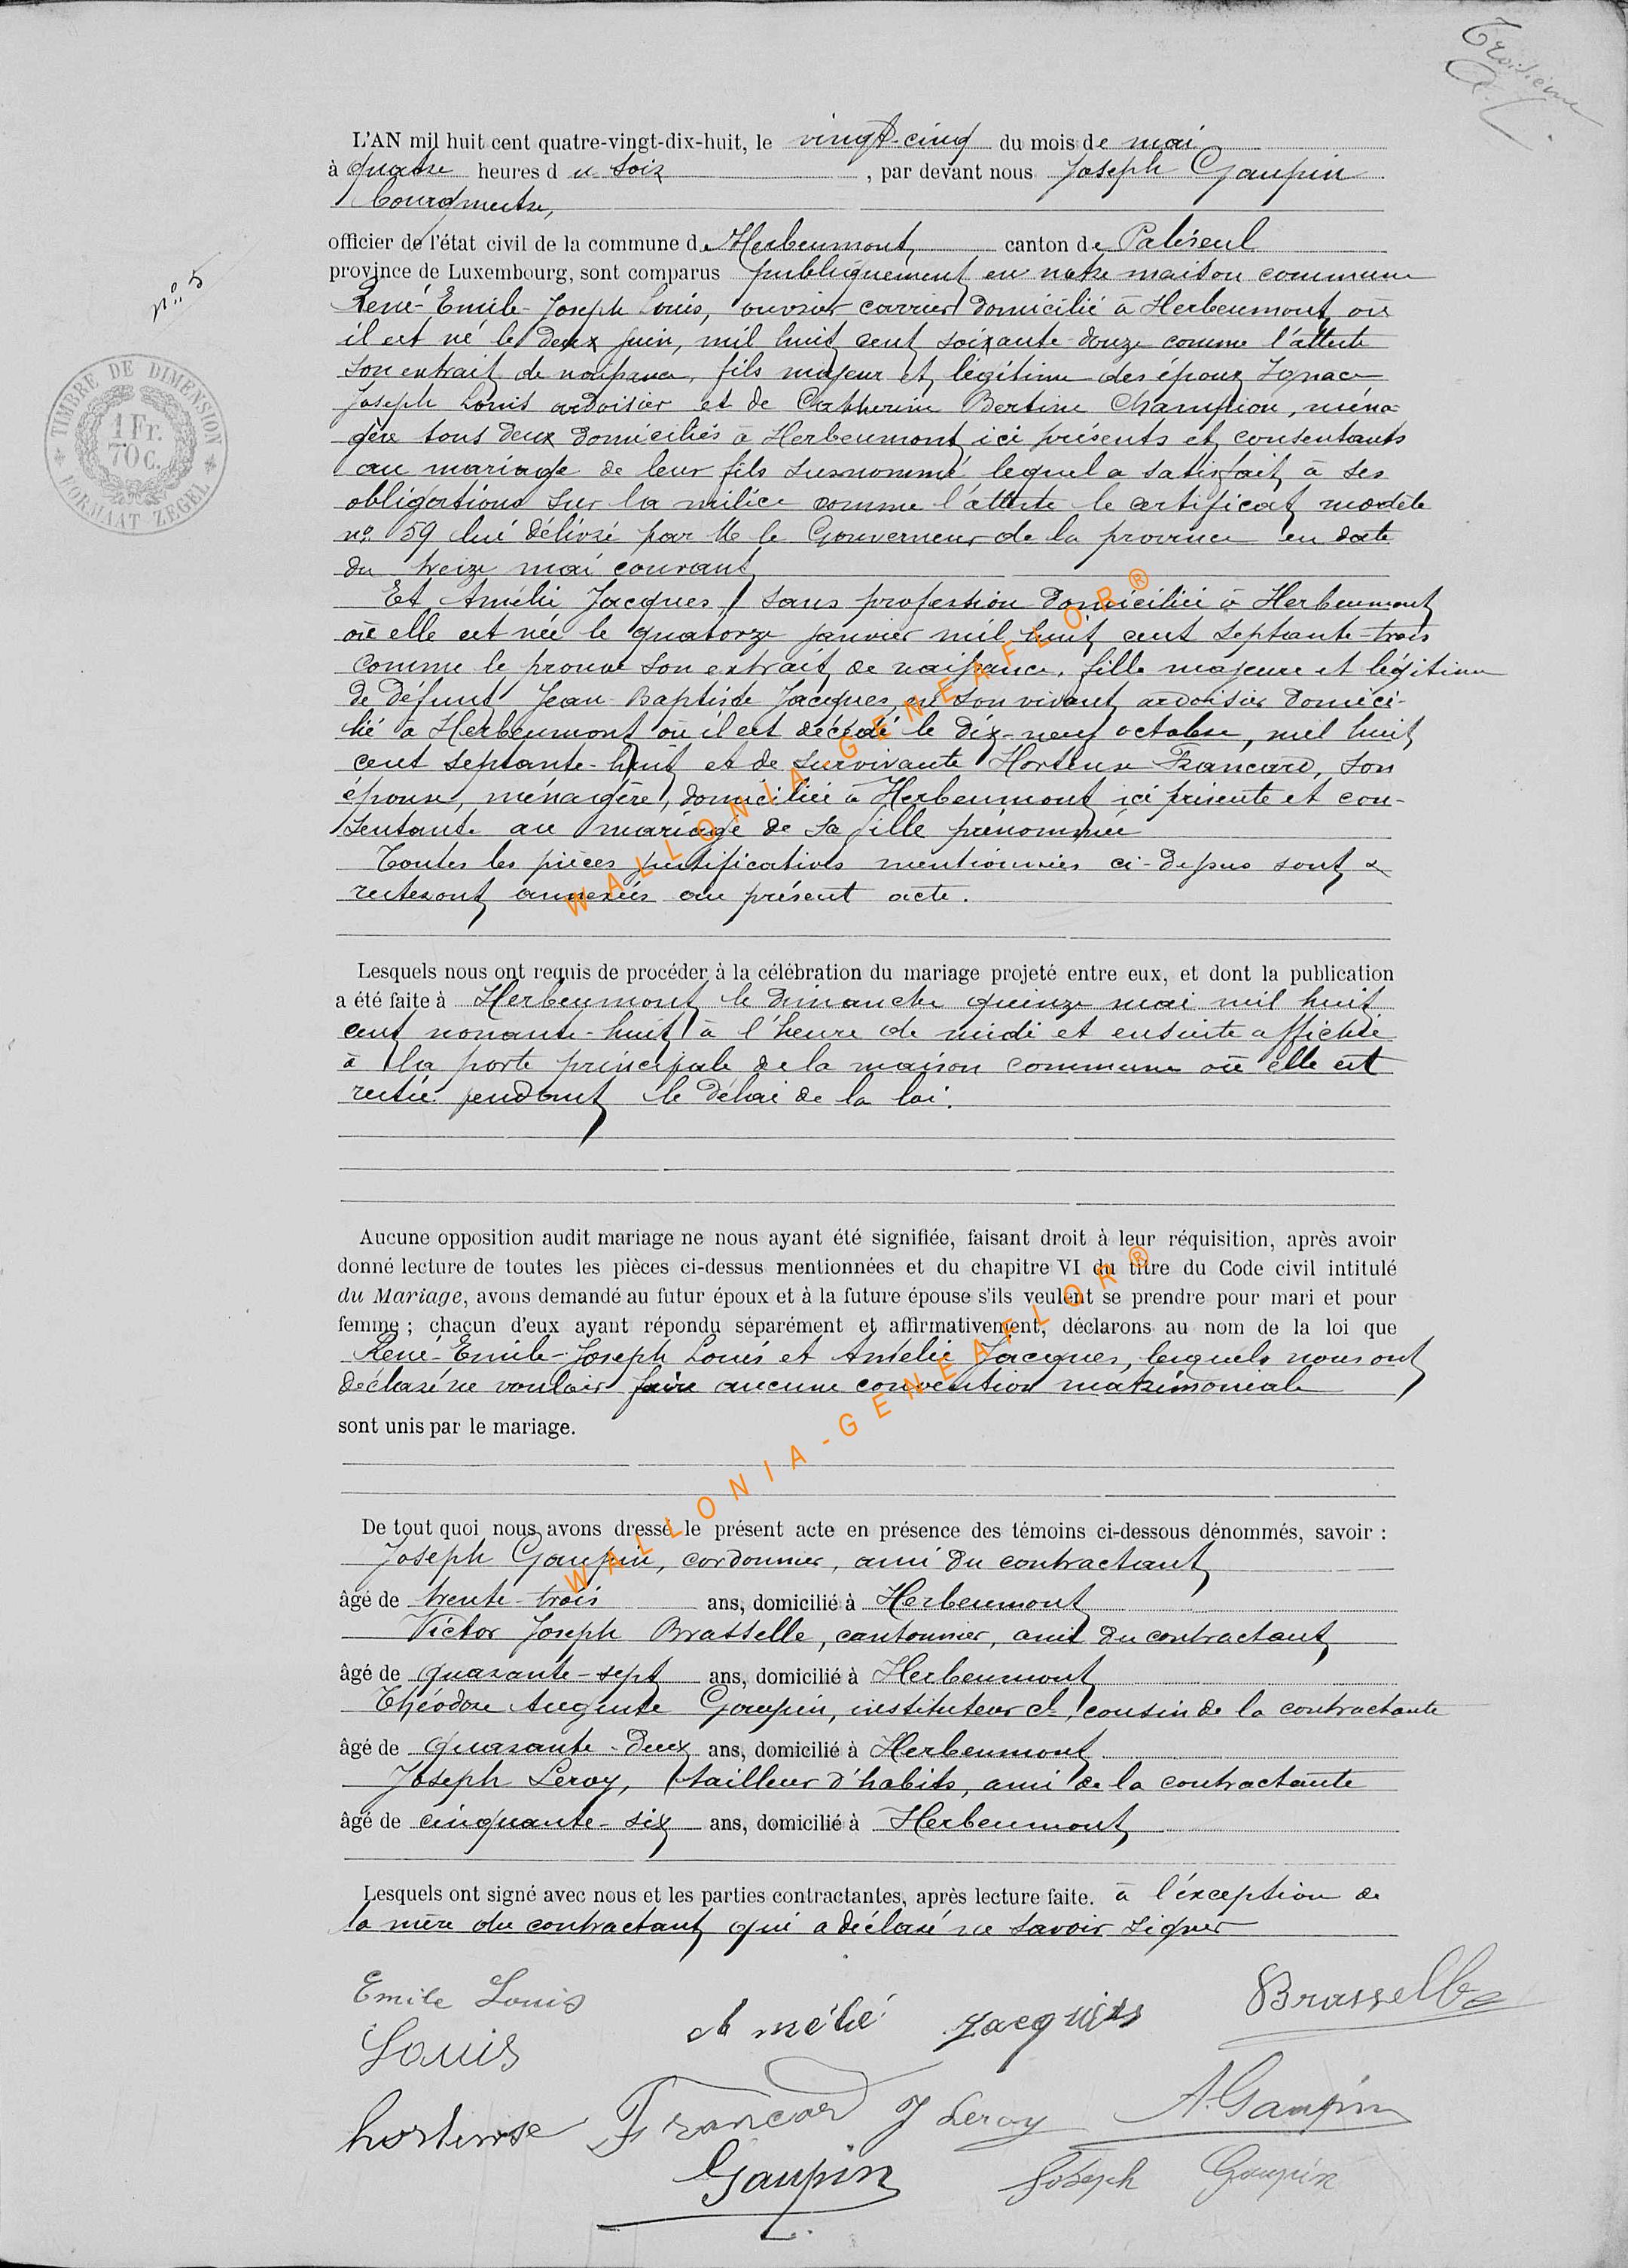 Troisième
L'AN mil huit cent quatre-vingt-dix-huit, le vingt-cinq du mois de mai
à quatre heures du soir, par devant nous Joseph Gaupin
bourgmestre,
officier de l'état civil de la commune de Herbeumont canton de Paliseul
province de Luxembourg, sont comparus publiquement en notre maison commune
n° 5
René-Emile-Joseph Louis, ouvrier carrier domicilié à Herbeumont où
il est né le deux juin, mil huit cent soixante-douze comme l'atteste
TIMBRE DE DIMENSION
1 Fr.
70 C.
FORMAAT ZEGEL
son extrait de naissance, fils majeur et légitime des époux Ignace
Joseph Louis ardoisier et de Catherine Bertine Champion, ména-
gère tous deux domiciliés à Herbeumont ici présents et consentants
au mariage de leur fils susnommé lequel a satisfait à ses
obligations sur la milice comme l'atteste le certificat modèle
n° 59 lui délivré par M le Gouverneur de la province en date
du treize mai courant
Et Amélie Jacques, sans profession domiciliée à Herbeumont
où elle est née le quatorze janvier mil huit cent septante-trois
comme le prouve son extrait de naissance, fille majeure et légitime
de défunt Jean-Baptiste Jacques, en son vivant ardoisier domici-
lié à Herbeumont où il est décédé le dix-neuf octobre, mil huit
cent septante-huit et de survivante Hortense Francard, son
épouse, ménagère, domiciliée à Herbeumont ici présente et con-
sentante au mariage de sa fille prénommée
Toutes les pièces justificatives mentionnées ci-dessus sont &
resteront annexées au présent acte.
WALLONIA-GENEAFLOR®
Lesquels nous ont requis de procéder à la célébration du mariage projeté entre eux, et dont la publication
a été faite à Herbeumont le dimanche quinze mai mil huit
cent nonante-huit à l'heure de midi et ensuite affichée
à la porte principale de la maison commune où elle est
restée pendant le délai de la loi.
Aucune opposition audit mariage ne nous ayant été signifiée, faisant droit à leur réquisition, après avoir
donné lecture de toutes les pièces ci-dessus mentionnées et du chapitre VI du titre du Code civil intitulé
du Mariage, avons demandé au futur époux et à la future épouse s'ils veulent se prendre pour mari et pour
femme ; chacun d'eux ayant répondu séparément et affirmativement, déclarons au nom de la loi que
René-Emile-Joseph Louis et Amélie Jacques, lesquels nous ont
déclaré ne vouloir faire aucune convention matrimoniale
sont unis par le mariage.
WALLONIA-GENEAFLOR®
De tout quoi nous avons dressé le présent acte en présence des témoins ci-dessous dénommés, savoir :
Joseph Gaupin, cordonnier, ami du contractant
âgé de trente-trois ans, domicilié à Herbeumont
Victor Joseph Brasselle, cantonnier, ami du contractant
âgé de quarante-sept ans, domicilié à Herbeumont
Théodore Auguste Gaupin, instituteur cl, cousin de la contractante
âgé de quarante-deux ans, domicilié à Herbeumont
Joseph Leroy, tailleur d'habits, ami de la contractante
âgé de cinquante-six ans, domicilié à Herbeumont
Lesquels ont signé avec nous et les parties contractantes, après lecture faite. à l'exception de
la mère du contractant qui a déclaré ne savoir signer
Emile Louis
Amélié Jacques
Brasselle
Louis
hortense Francard
J Leroy
A. Gaupin
Gaupin
Joseph Gaupin